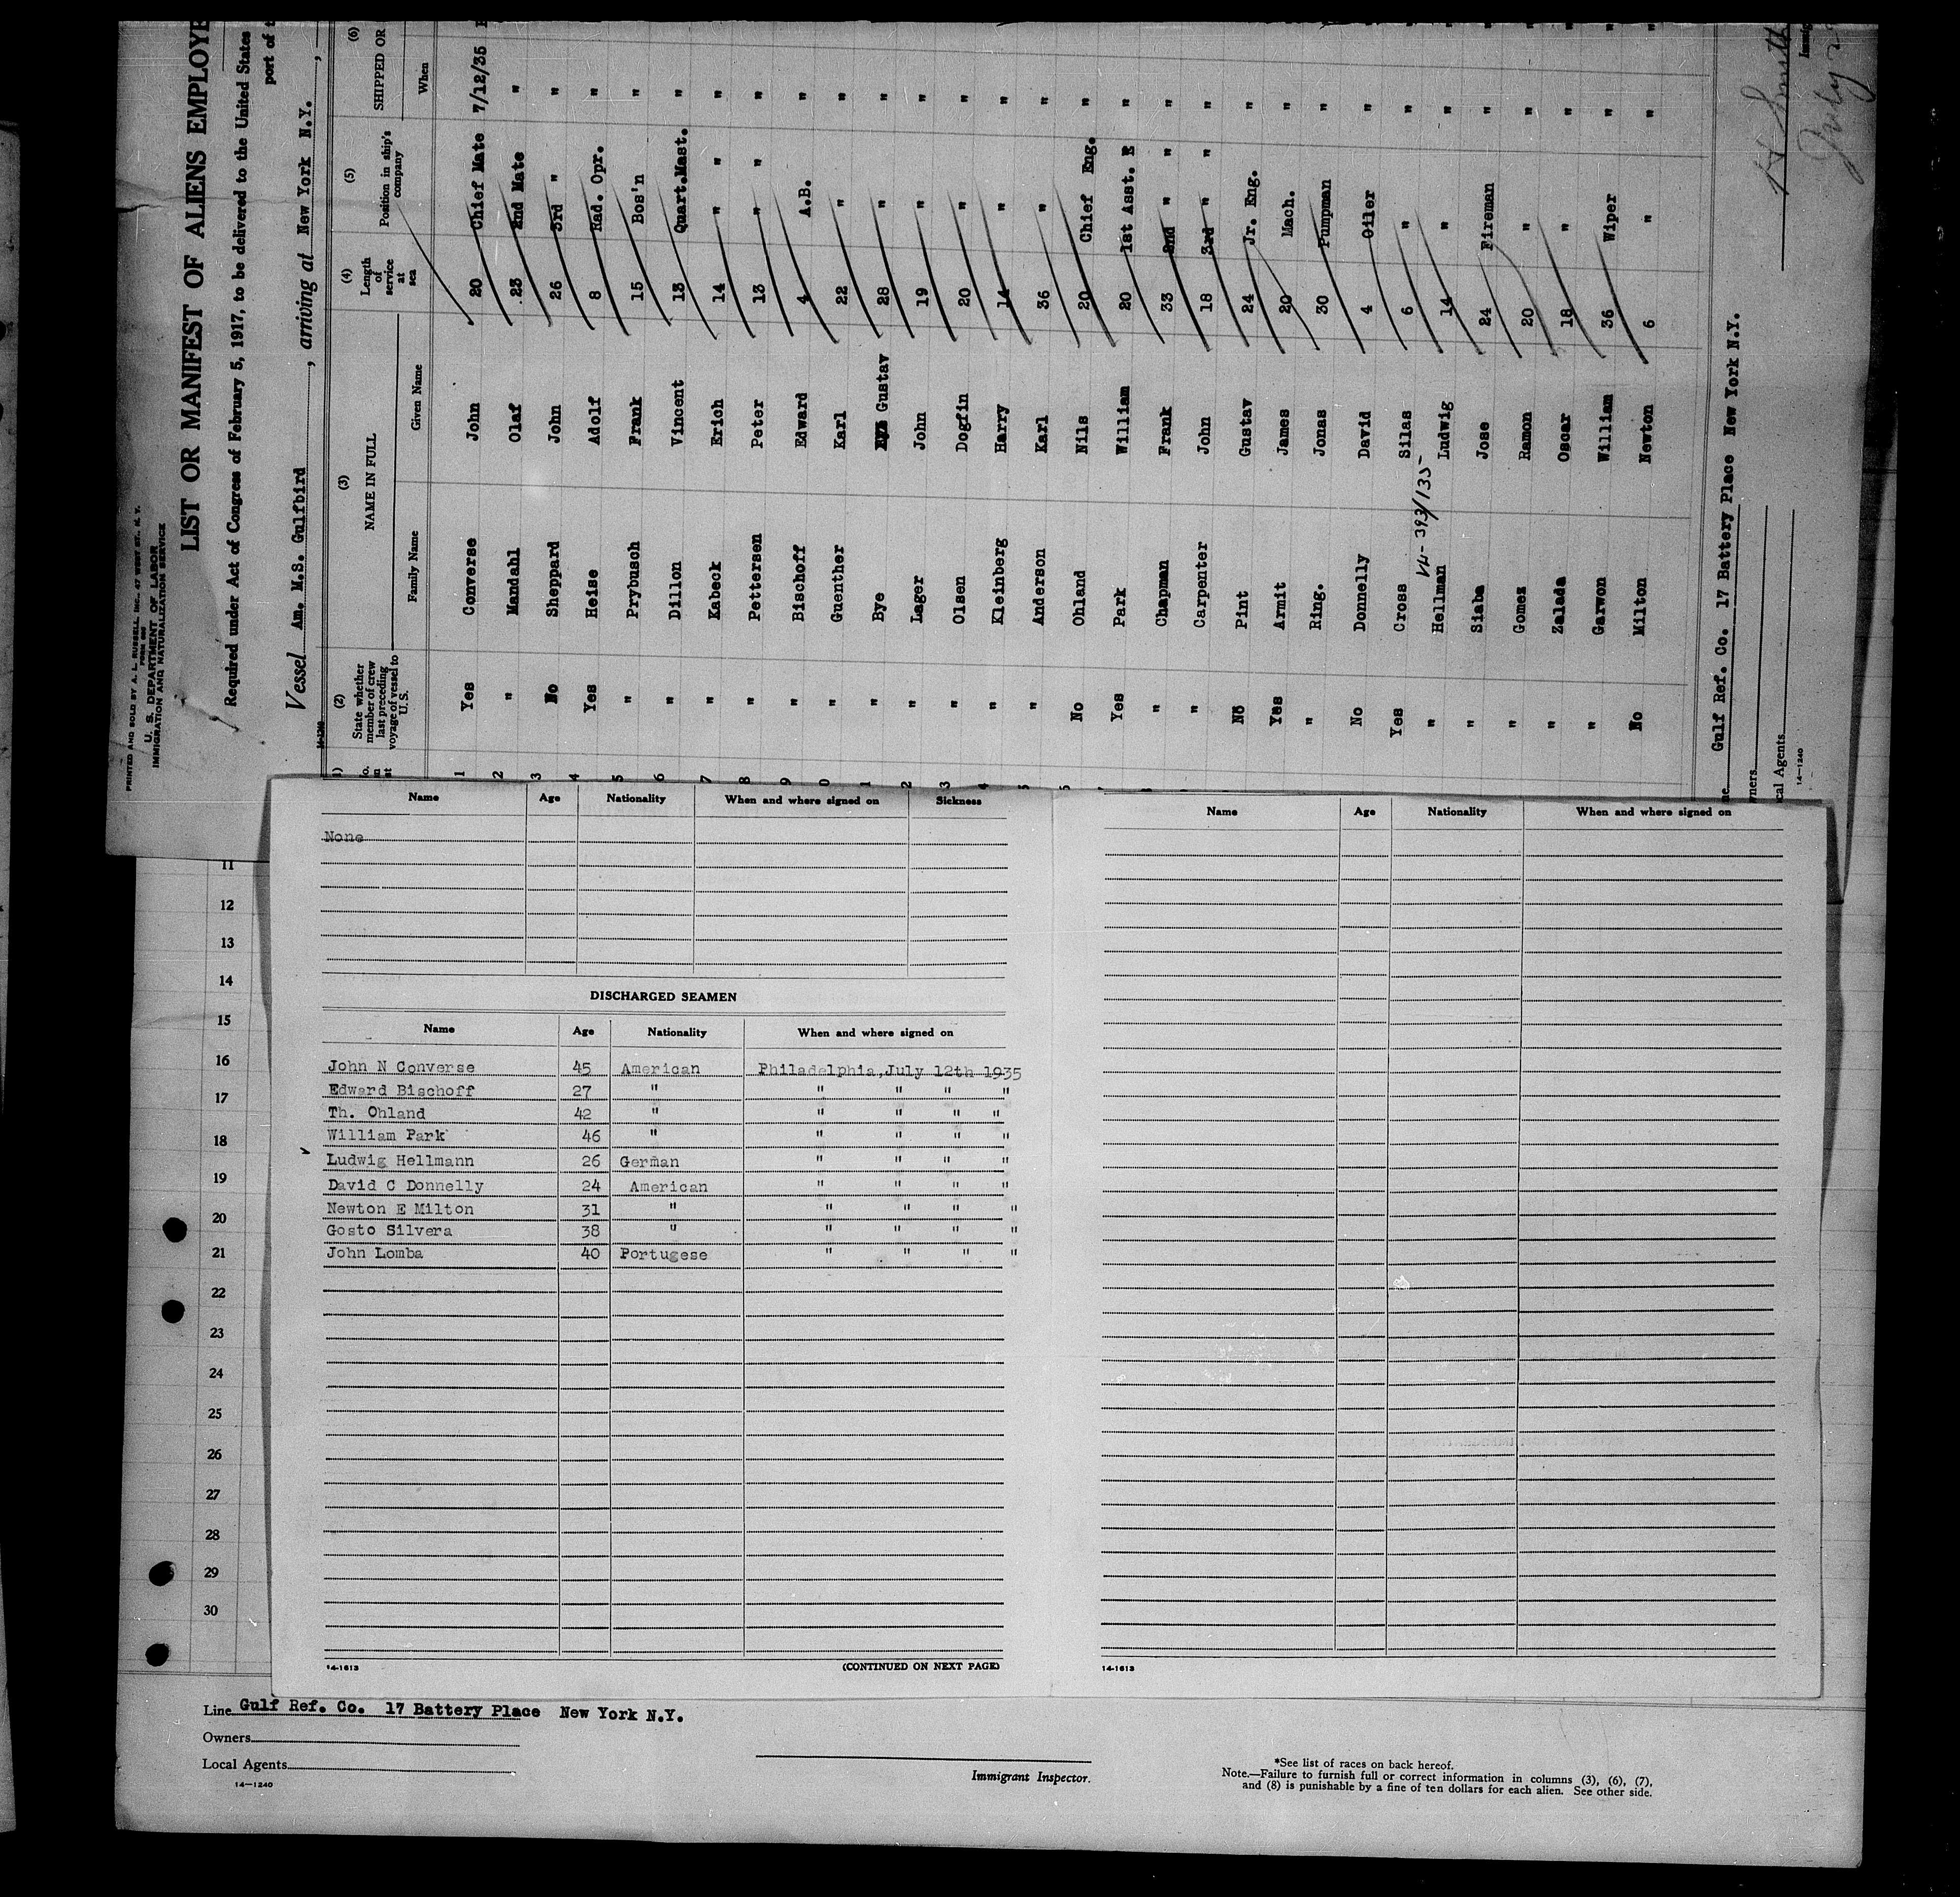 PRINTED AND SOLD BY A. L. RUSSELL, INC., 47 WEST ST., N. Y.
U. S. DEPARTMENT OF LABOR
IMMIGRATION AND NATURALIZATION SERVICE
LIST OR MANIFEST OF ALIENS EMPLOYE
Required under Act of Congress of February 5, 1917, to be delivered to the United States
port of
Vessel Am. M.S. Gulfbird, arriving at New York N.Y.,
14-1240
(2) (3) (4) (5) (6)
State whether member of crew last preceding voyage of vessel to U.S. NAME IN FULL Length of service at sea Position in ship's company SHIPPED OR
Family Name Given Name When
1 Yes Converse John 20 Chief Mate 7/12/35
2 " Mandahl Olaf 23 2nd Mate "
3 No Sheppard John 26 3rd " "
4 Yes Heise Adolf 8 Rad. Opr. "
5 " Prybusch Frank 15 Bos'n "
6 " Dillon Vincent 13 Quart.Mast. "
7 " Kabeck Erich 14 " " "
8 " Pettersen Peter 13 " " "
9 " Bischoff Edward 4 A.B. "
0 " Guenther Karl 22 " "
1 " Bye Gustav 28 " "
2 " Lager John 19 " "
3 " Olsen Dogfin 20 " "
4 " Kleinberg Harry 14 " "
5 " Anderson Karl 36 " "
No Ohland Nils 20 Chief Eng. "
Yes Park William 20 1st Asst. E "
" Chapman Frank 33 2nd " " "
" Carpenter John 18 3rd " " "
No Pint Gustav 24 Jr. Eng. "
Yes Armit James 20 Mach. "
" Ring. Jonas 30 Pumpman "
No Donnelly David 4 Oiler "
Yes Cross Silas 6 " "
" Hellman Ludwig 14 " "
" Siaba Jose 24 Fireman "
" Gomez Ramon 20 " "
" Zalada Oscar 18 " "
" Garwon William 36 Wiper "
No Milton Newton 6 " "
Gulf Ref. Co. 17 Battery Place New York N.Y.
14-1240
Name Age Nationality When and where signed on Sickness
None
DISCHARGED SEAMEN
Name Age Nationality When and where signed on
John N Converse 45 American Philadelphia,July 12th 1935
Edward Bischoff 27 " " " " "
Th. Ohland 42 " " " " "
William Park 46 " " " " "
Ludwig Hellmann 26 German " " " "
David C Donnelly 24 American " " " "
Newton E Milton 31 " " " " "
Gosto Silvera 38 " " " " "
John Lomba 40 Portugese " " " "
14-1613 (CONTINUED ON NEXT PAGE)
Name Age Nationality When and where signed on
14-1613
11
12
13
14
15
16
17
18
19
20
21
22
23
24
25
26
27
28
29
30
Line Gulf Ref. Co. 17 Battery Place New York N.Y.
Owners
Local Agents
14-1240
Immigrant Inspector.
*See list of races on back hereof.
Note.—Failure to furnish full or correct information in columns (3), (6), (7),
and (8) is punishable by a fine of ten dollars for each alien. See other side.